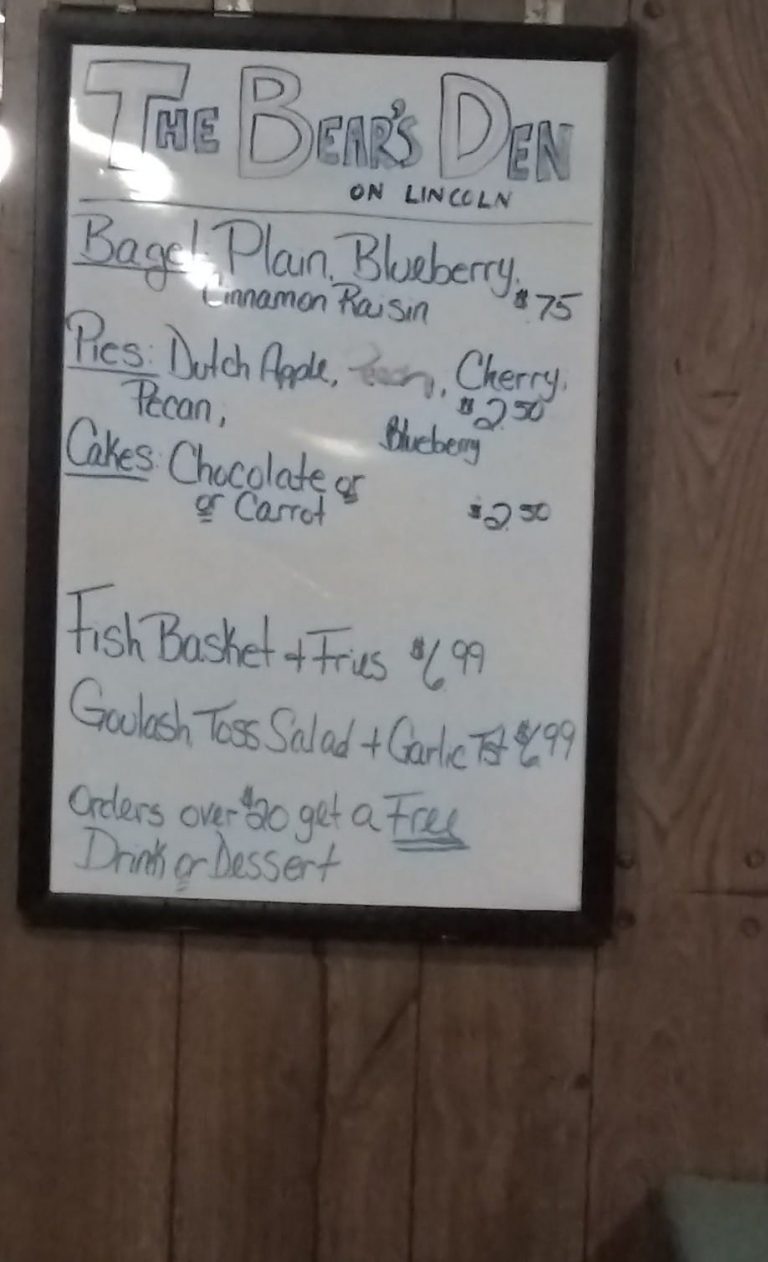 THE BEAR'S DEN
ON LINCOLN
Bagel Plain, Blueberry,
Cinnamon Raisin $.75
Pies: Dutch Apple, , Cherry,
Pecan, $2.50
Blueberry
Cakes: Chocolate or
or Carrot $2.50
Fish Basket + Fries $6.99
Goulash Toss Salad + Garlic Tst $6.99
Orders over $20 get a Free
Drink or Dessert